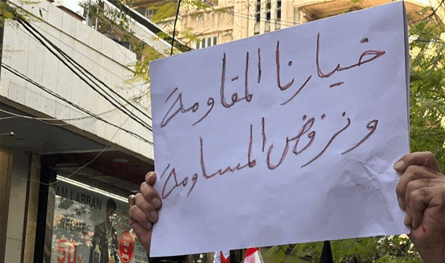 خيارنا المقاومة
ونرفض المساومة
50%